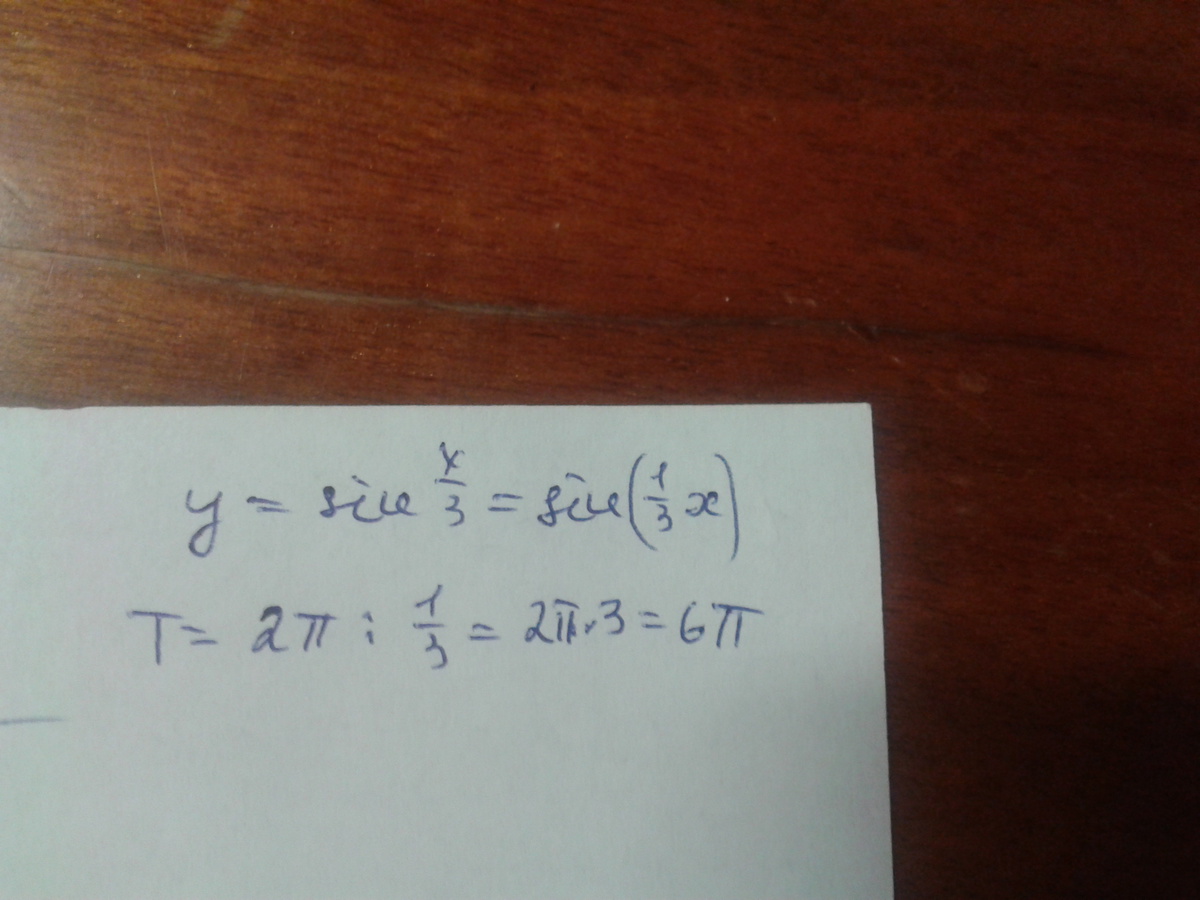 y = sin x/3 = sin(1/3 x)
T = 2π : 1/3 = 2π·3 = 6π